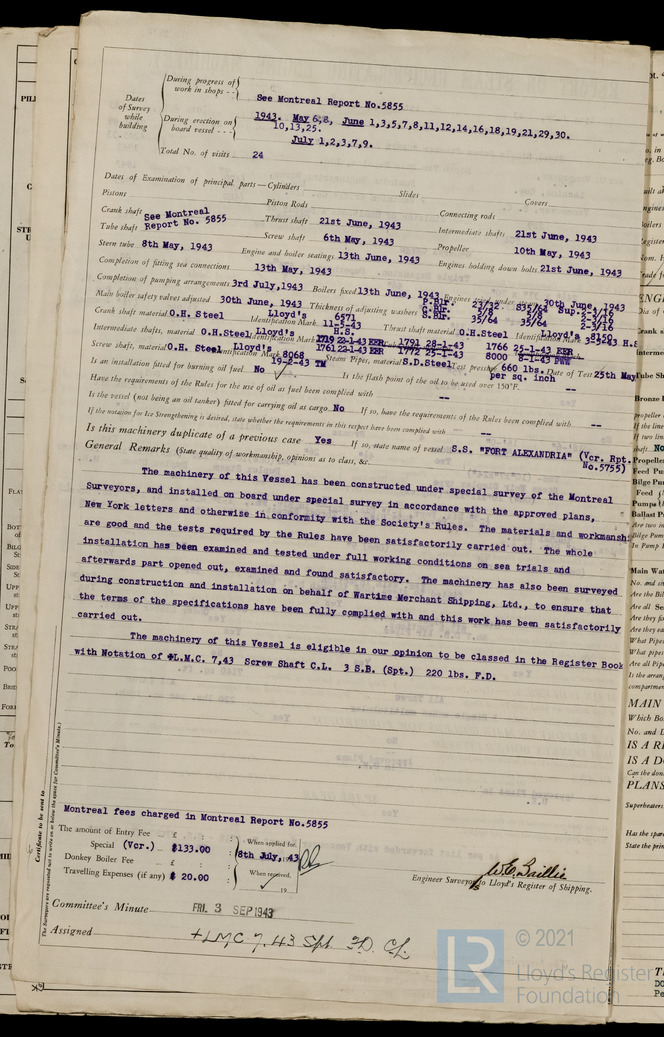 During progress of work in shops - -
See Montreal Report No.5855
Dates of Survey while building
During erection on board vessel - - -
1943. May 6,8, June 1,3,5,7,8,11,12,14,16,18,19,21,29,30.
10,13,25.
July 1,2,3,7,9.
Total No. of visits 24
Dates of Examination of principal parts — Cylinders Slides Covers
Pistons Piston Rods Connecting rods
Crank shaft See Montreal Thrust shaft 21st June, 1943 Intermediate shafts 21st June, 1943
Tube shaft Report No. 5855 Screw shaft 6th May, 1943 Propeller 10th May, 1943
Stern tube 8th May, 1943 Engine and boiler seatings 13th June, 1943 Engines holding down bolts 21st June, 1943
Completion of fitting sea connections 13th May, 1943
Completion of pumping arrangements 3rd July, 1943 Boilers fixed 13th June, 1943 Engines tried under steam 30th June, 1943
Main boiler safety valves adjusted 30th June, 1943 Thickness of adjusting washers 23/32 S35/64 Sup. 2-3/16
5/8 35/64 2-3/16
35/64 35/64 2-3/16
Crank shaft material O.H. Steel Identification Mark Lloyd's 6571 11-5-43 H.S. Thrust shaft material O.H. Steel Identification Mark Lloyd's 8150
Intermediate shafts, material O.H. Steel Identification Marks Lloyd's 1719 22-1-43 EER 1791 28-1-43 1766 25-1-43 EER
1761 22-1-43 EER 1772 25-1-43 8000 8-1-43
Screw shaft, material O.H. Steel Identification Mark Lloyd's 8068 19-2-43 TM Steam Pipes, material S.D. Steel Test pressure 660 lbs. per sq. inch Date of Test 25th May
Is an installation fitted for burning oil fuel No Is the flash point of the oil to be used over 150°F. --
Have the requirements of the Rules for the use of oil as fuel been complied with --
Is the vessel (not being an oil tanker) fitted for carrying oil as cargo No If so, have the requirements of the Rules been complied with --
If the notation for Ice Strengthening is desired, state whether the requirements in this respect have been complied with --
Is this machinery duplicate of a previous case Yes If so, state name of vessel S.S. "FORT ALEXANDRIA" (Vcr. Rpt. No.5755)
General Remarks (State quality of workmanship, opinions as to class, &c.
The machinery of this Vessel has been constructed under special survey of the Montreal
Surveyors, and installed on board under special survey in accordance with the approved plans,
New York letters and otherwise in conformity with the Society's Rules. The materials and workmanshi
are good and the tests required by the Rules have been satisfactorily carried out. The whole
installation has been examined and tested under full working conditions on sea trials and
afterwards part opened out, examined and found satisfactory. The machinery has also been surveyed
during construction and installation on behalf of Wartime Merchant Shipping, Ltd., to ensure that
the terms of the specifications have been fully complied with and this work has been satisfactorily
carried out.
The machinery of this Vessel is eligible in our opinion to be classed in the Register Book
with Notation of +L.M.C. 7,43 Screw Shaft C.L. 3 S.B. (Spt.) 220 lbs. F.D.
Certificate to be sent to
(The Surveyors are requested not to write on or below the space for Committee's Minute.)
Montreal fees charged in Montreal Report No.5855
The amount of Entry Fee £ : When applied for,
Special (Vcr.) $133.00 : 8th July, 43
Donkey Boiler Fee £ : When received,
Travelling Expenses (if any) $ 20.00 : 19
W.E. Baillie
Engineer Surveyor to Lloyd's Register of Shipping.
Committee's Minute FRI. 3 SEP 1943
Assigned +LMC 7.43 Spt. F.D. CL.
LR © 2021
Lloyd's Register
Foundation